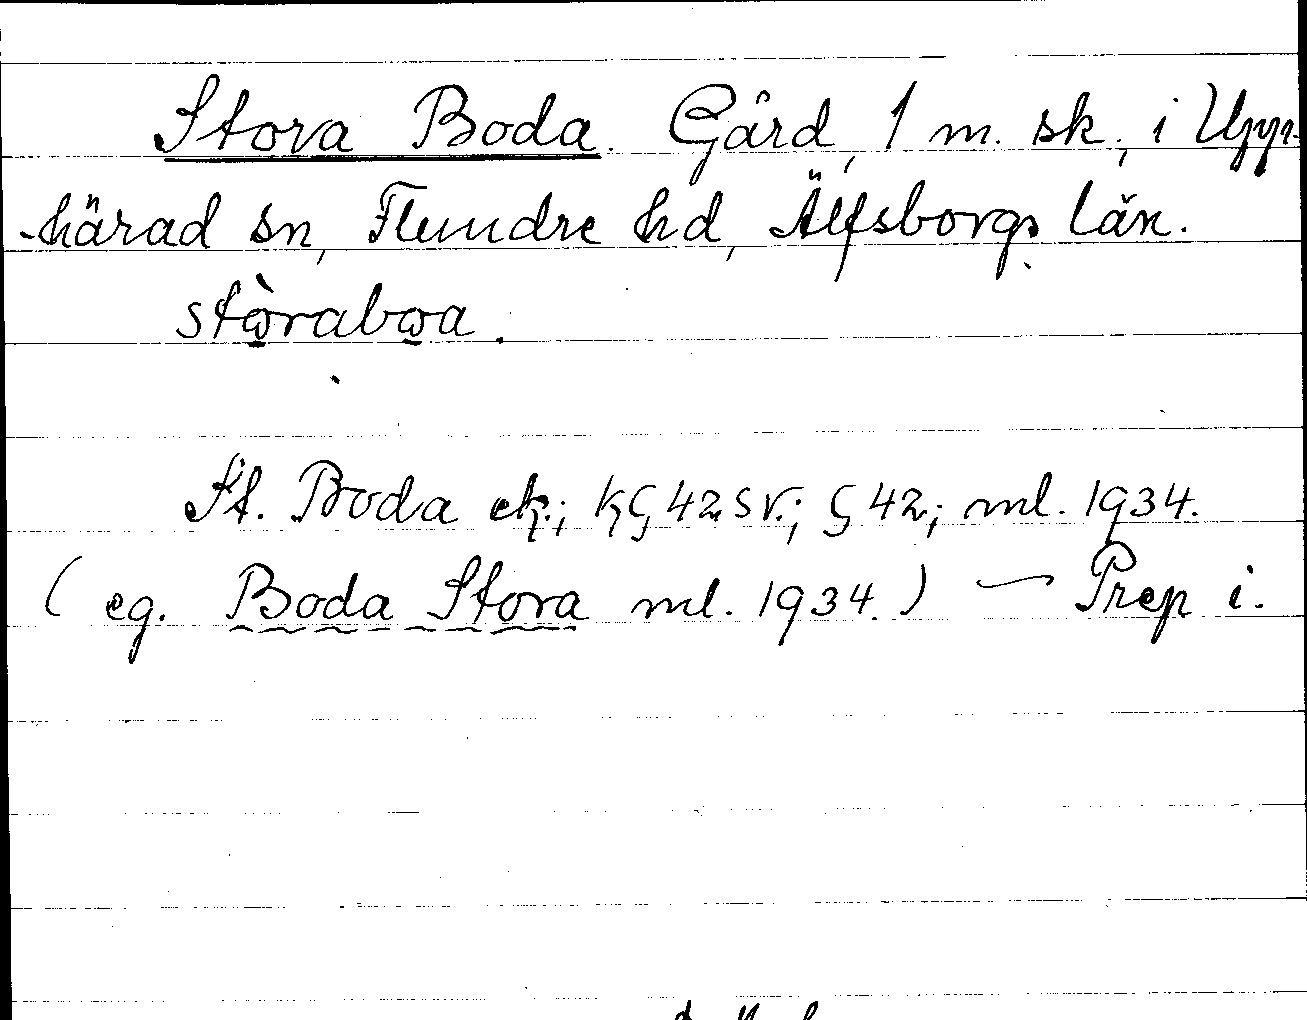 Stora Boda. Gård, 1 m. sk., i Upp-
härad sn, Flundre hd, Älfsborgs län.
stòraboa.
St. Boda ek.; kG 42 sv.; G 42; ml. 1934.
( eg. Boda Stora ml. 1934. ) — Prep i.